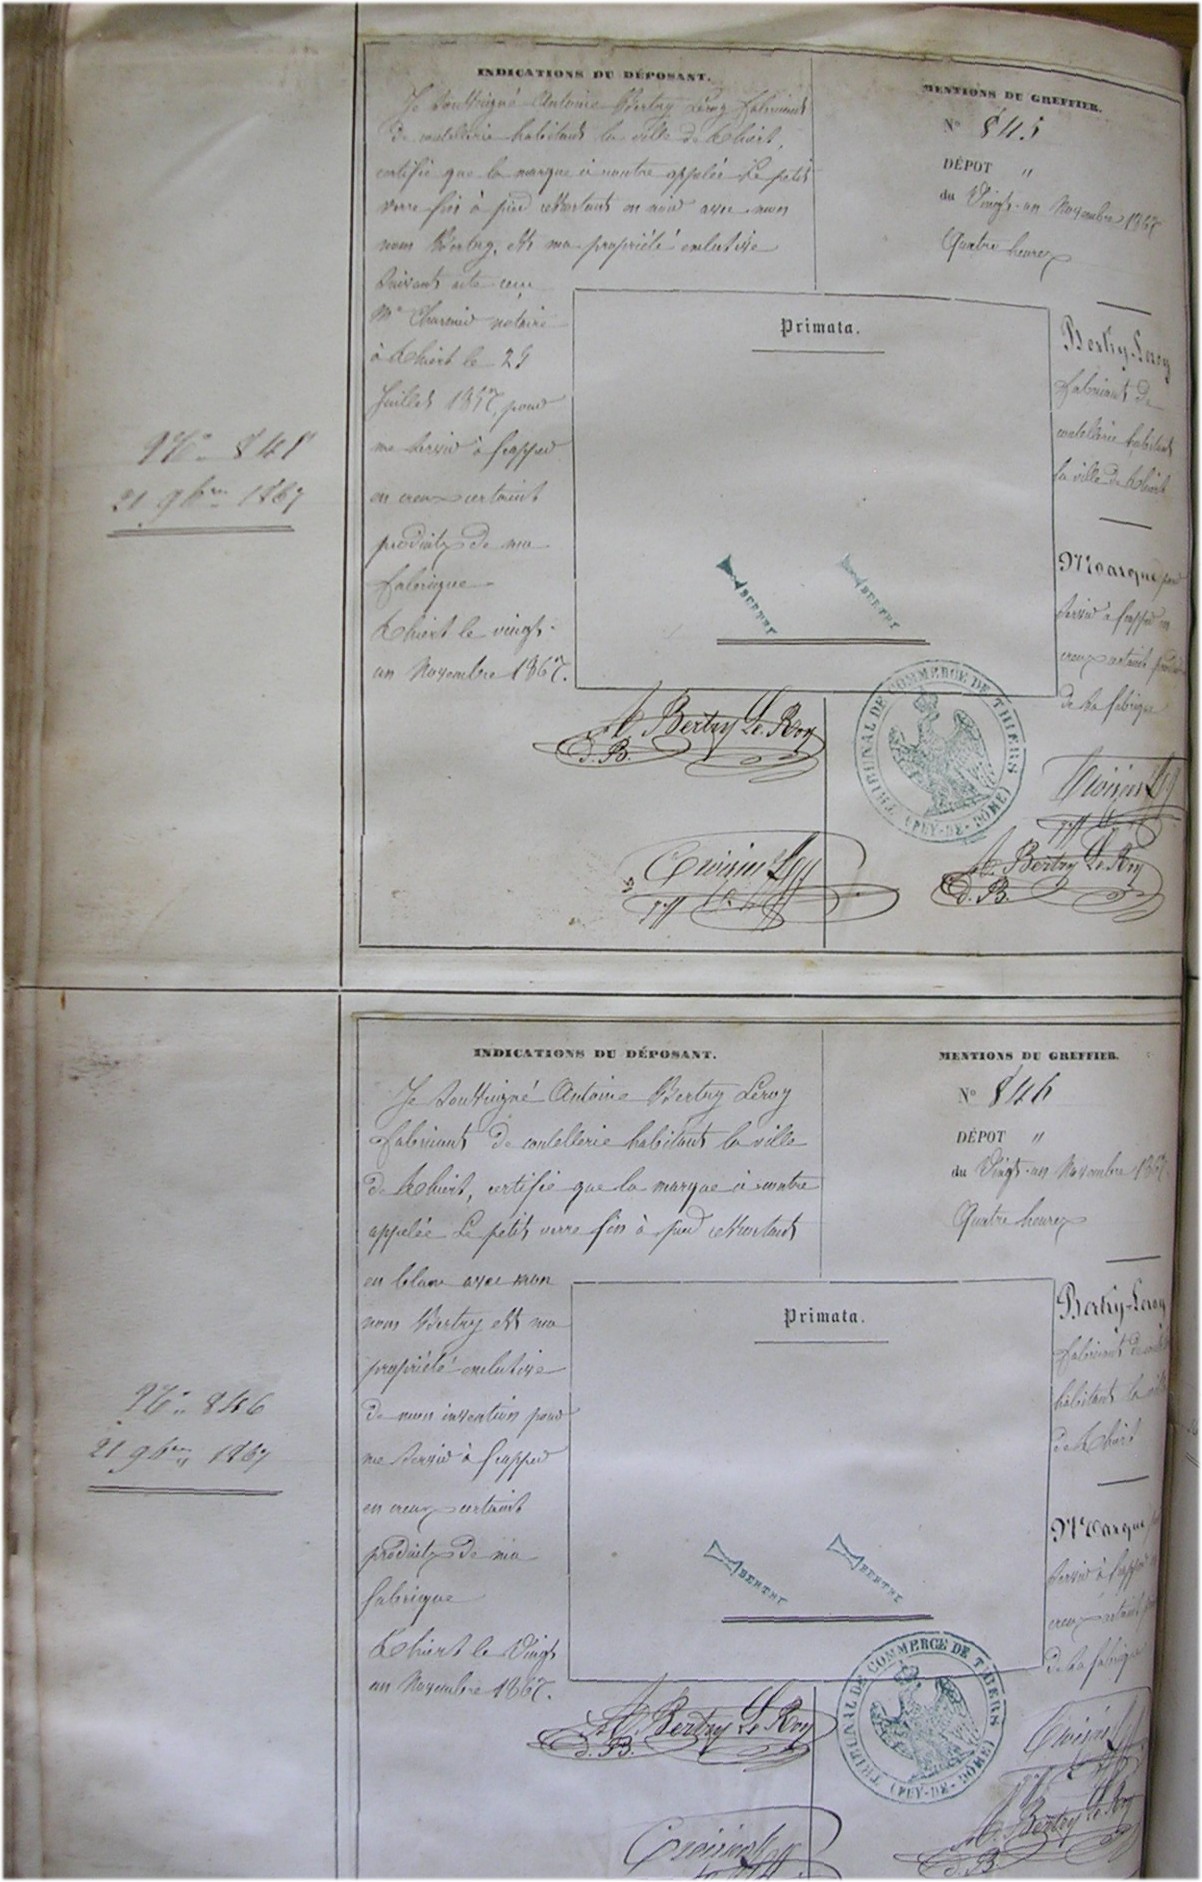 INDICATIONS DU DÉPOSANT.
Je soussigné Antoine Bertry Leroy fabricant
de coutellerie habitant la ville de Thiers,
certifie que la marque ci contre appelée Le petit
verre fin à pied ressortant en noir avec mon
nom Bertry, est ma propriété exclusive
suivant acte reçu
Me notaire
à Thiers le 29
Juillet 1857, pour
me servir à frapper
en creux certains
produits de ma
fabrique
Thiers le vingt-
un Novembre 1867.
MENTIONS DU GREFFIER.
N° 845
DÉPOT "
du Vingt-un Novembre 1867
Quatre heures
Primata.
BERTRY
BERTRY
Bertry-Leroy
fabricant de
coutellerie habitant
la ville de Thiers
Marque pour
servir à frapper en
creux certains produits
de sa fabrique
N° 845
21 9bre 1867
A. Bertry Le Roy
d. B.
TRIBUNAL DE COMMERCE DE THIERS
(PUY-DE-DOME)
A. Bertry Le Roy
d. B.
INDICATIONS DU DÉPOSANT.
Je soussigné Antoine Bertry Leroy
fabricant de coutellerie habitant la ville
de Thiers, certifie que la marque ci contre
appelée Le petit verre fin à pied ressortant
en blanc avec mon
nom Bertry est ma
propriété exclusive
de mon invention pour
me servir à frapper
en creux certains
produits de ma
fabrique
Thiers le Vingt
un Novembre 1867.
MENTIONS DU GREFFIER.
N° 846
DÉPOT "
du Vingt-un Novembre 1867
Quatre heures
Primata.
BERTRY
BERTRY
Bertry-Leroy
fabricant de
habitant la ville
de Thiers
Marque
servir à frapper
creux certains
de sa fabrique
N° 846
21 9bre 1867
A. Bertry Le Roy
d. B.
TRIBUNAL DE COMMERCE DE THIERS
(PUY-DE-DOME)
A. Bertry Le Roy
d. B.